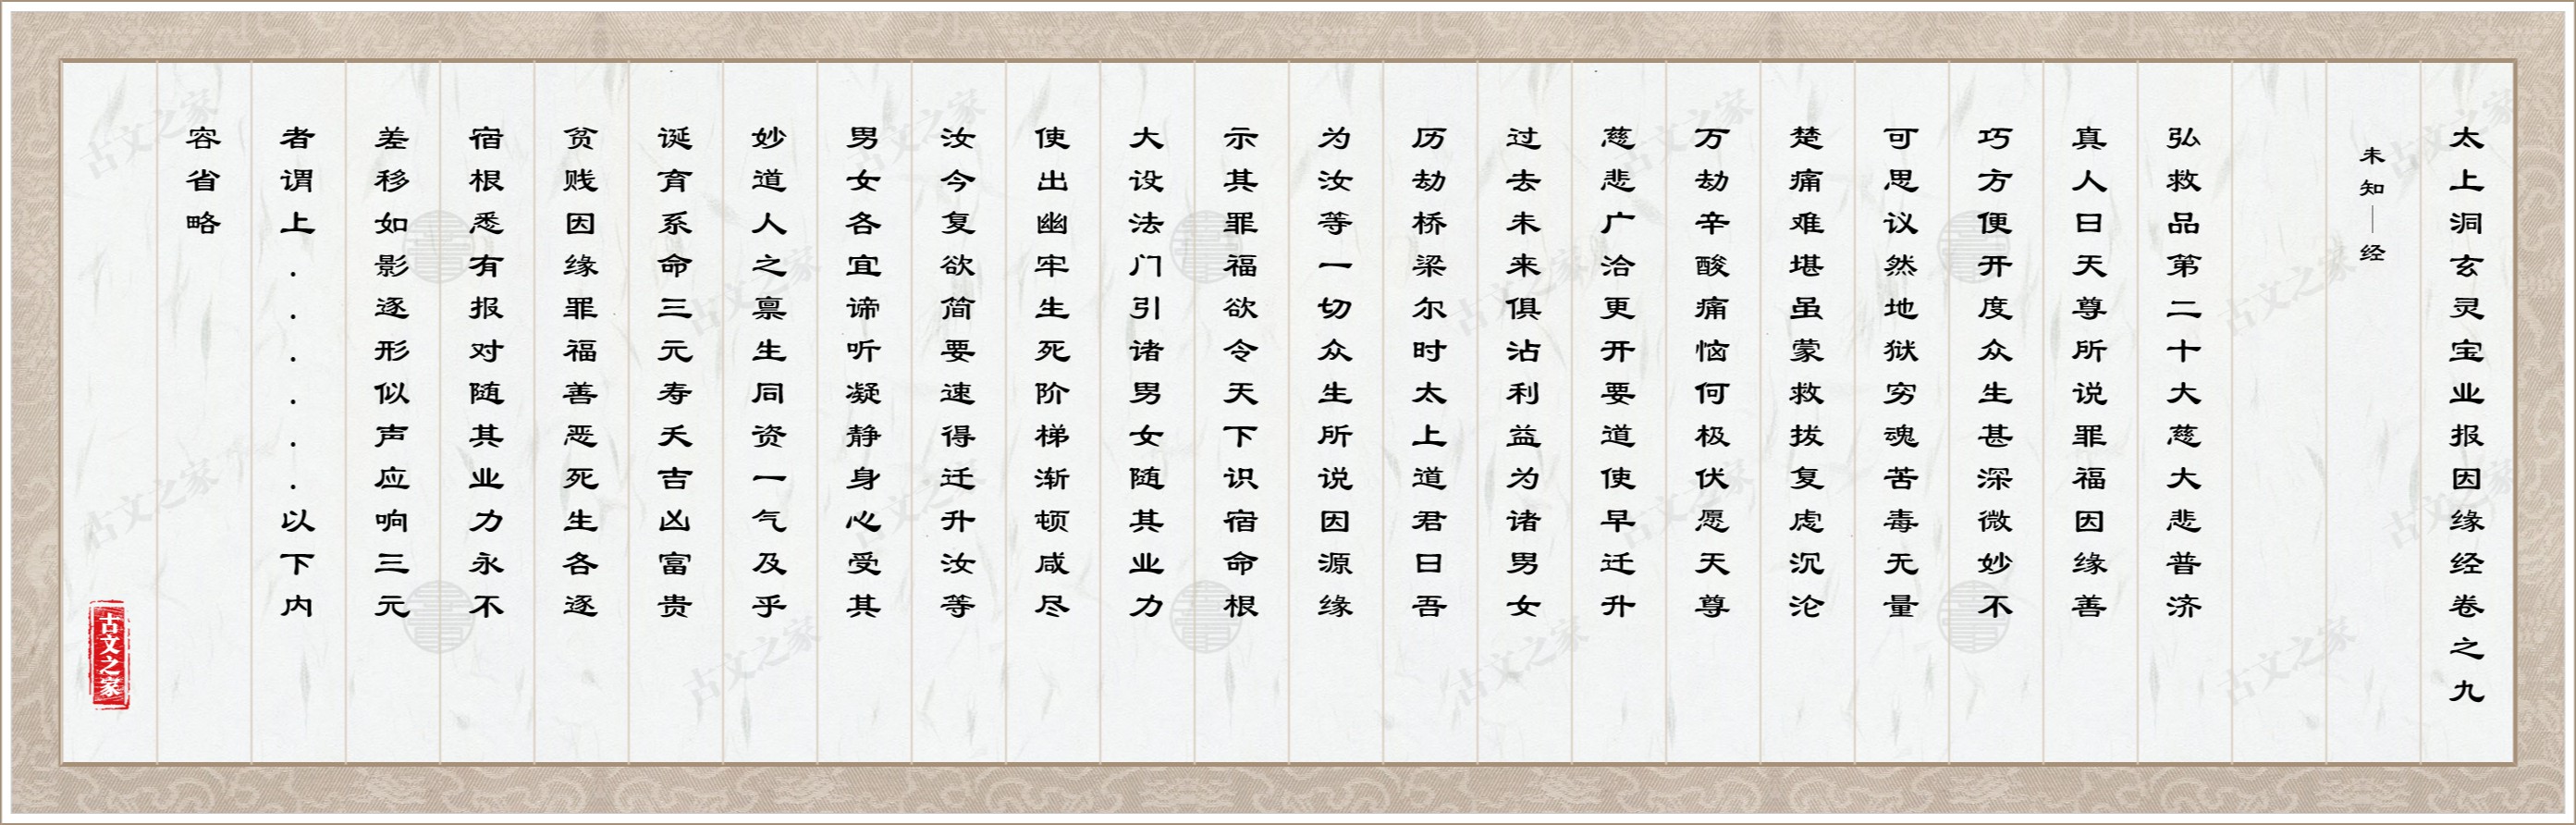 太上洞玄灵宝业报因缘经卷之九
未知—经
弘救品第二十大慈大悲普济
真人曰天尊所说罪福因缘善
巧方便开度众生甚深微妙不
可思议然地狱穷魂苦毒无量
楚痛难堪虽蒙救拔复虑沉沦
万劫辛酸痛恼何极伏愿天尊
慈悲广洽更开要道使早迁升
过去未来俱沾利益为诸男女
历劫桥梁尔时太上道君曰吾
为汝等一切众生所说因源缘
示其罪福欲令天下识宿命根
大设法门引诸男女随其业力
使出幽牢生死阶梯渐顿咸尽
汝今复欲简要速得迁升汝等
男女各宜谛听凝静身心受其
妙道人之禀生同资一气及乎
诞育系命三元寿夭吉凶富贵
贫贱因缘罪福善恶死生各逐
宿根悉有报对随其业力永不
差移如影逐形似声应响三元
者谓上......以下内
容省略
古文之家